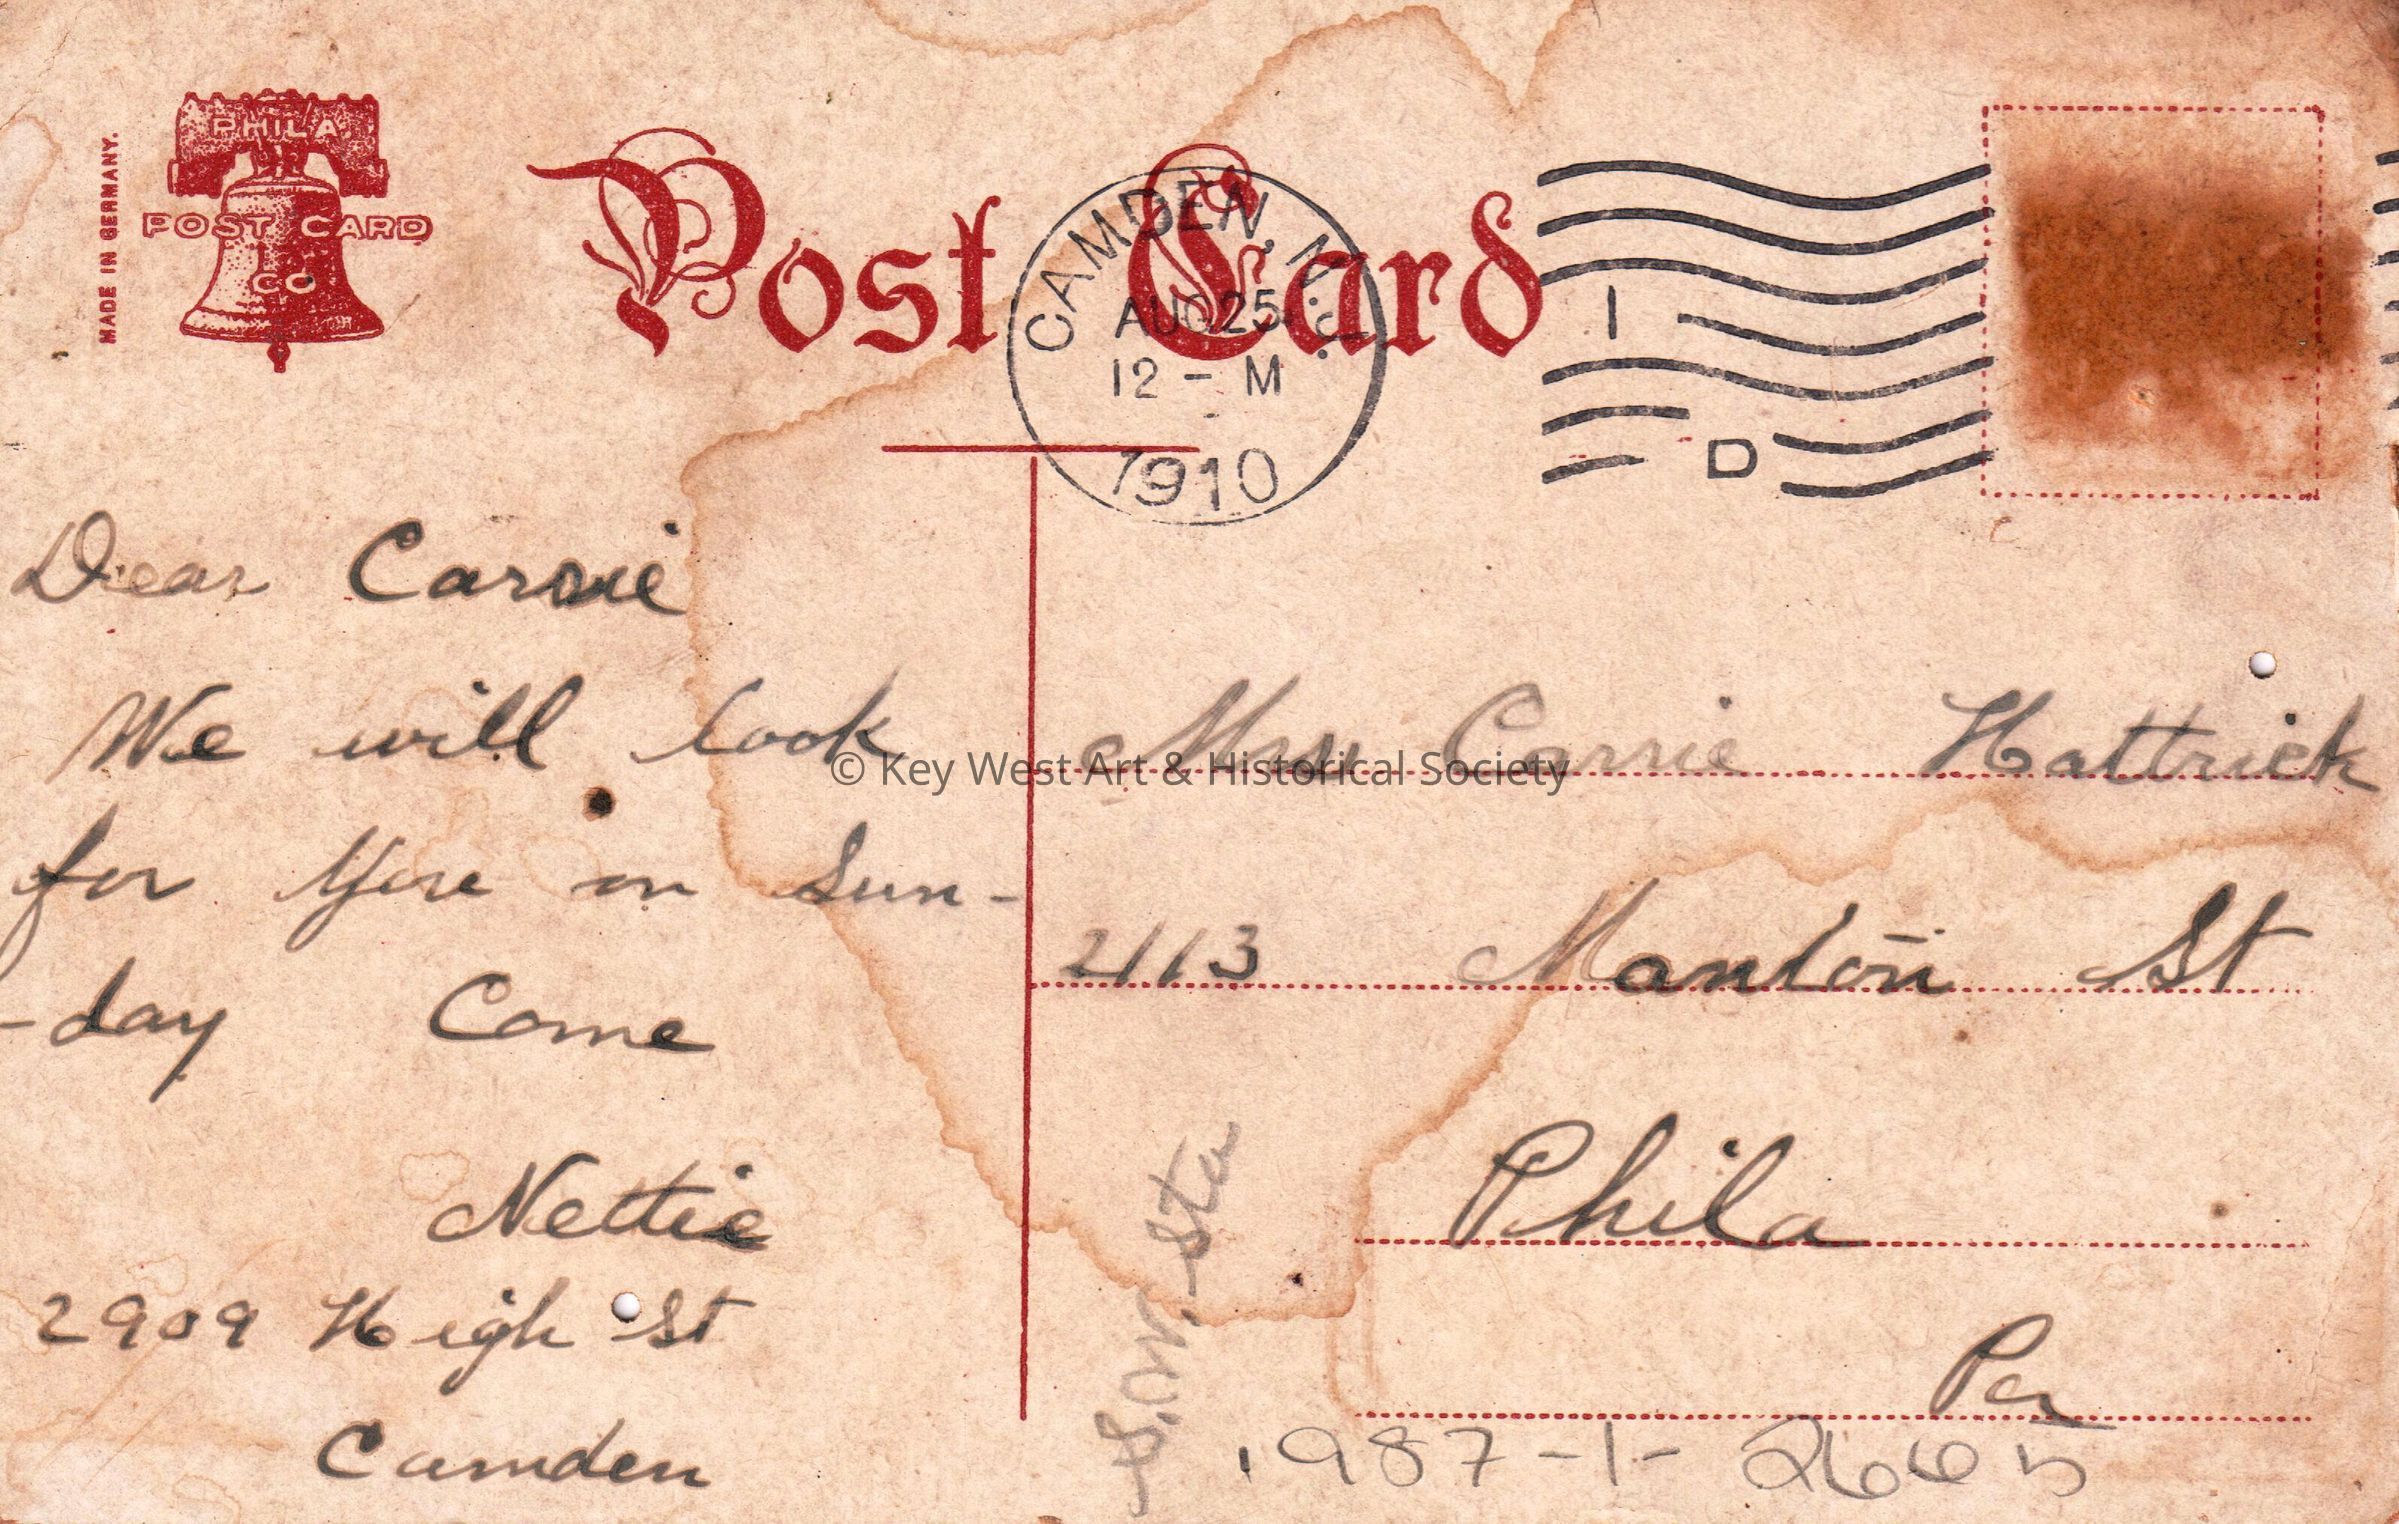 MADE IN GERMANY.
PHILA.
POST CARD
CO
Post Card
CAMDEN, N.J.
AUG 25
12 - M
1910
1
D
Dear Carrie
We will look
for you on Sun-
-day Come
Nettie
2909 High St
Camden
Mrs Carrie Hattrick
2113 Manton St
Phila
Pa
Sta
1987-1-2665
© Key West Art & Historical Society